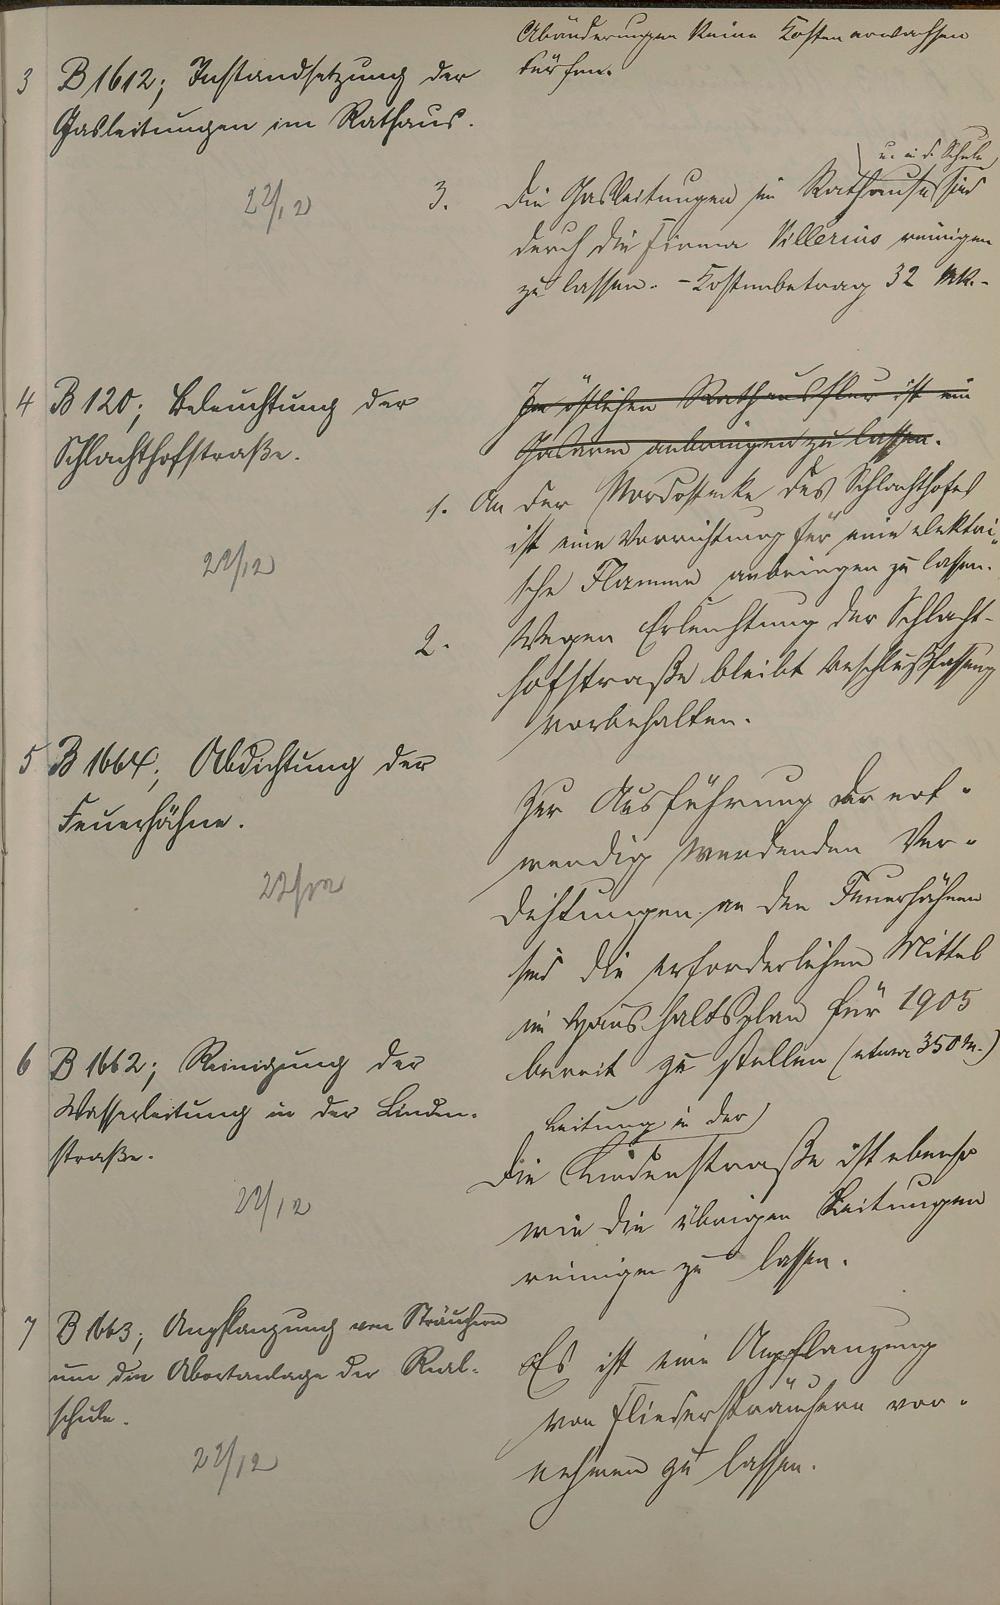 Abänderungen keine Kosten erwachsen
dürfen.
3 B 1612; Instandsetzung der
Gasleitungen im Rathaus.
22/12
u. i. d. Schule
3. Die Gasleitungen im Rathause sind
durch die Firma Villerius reinigen
zu lassen. - Kostenbetrag 32 Mk.-
4 B 120; Beleuchtung der
Schlachthofstraße.
22/12
Im östlichen Rathausflur ist ein
Gasarm anbringen zu lassen.
1. An der Nordostecke des Schlachthofes
ist eine Vorrichtung für eine elektri-
sche Flamme anbringen zu lassen.
2. Wegen Erleuchtung der Schlacht-
hofstraße bleibt Beschlußfassung
vorbehalten.
5 B 1664; Abdichtung der
Feuerhähne.
22/12
Zur Ausführung der not-
wendig werdenden Ver-
dichtungen an den Feuerhähnen
sind die erforderlichen Mittel
im Haushaltsplan für 1905
bereit zu stellen (etwa 350 M.)
6 B 1662; Reinigung der
Wasserleitung in der Linden-
straße.
22/12
Leitung in der
Die Lindenstraße ist ebenso
wie die übrigen Leitungen
reinigen zu lassen.
7 B 1663; Anpflanzung von Sträuchern
um die Abortanlage der Real-
schule.
22/12
Es ist eine Anpflanzung
von Fliedersträuchern vor-
nehmen zu lassen.